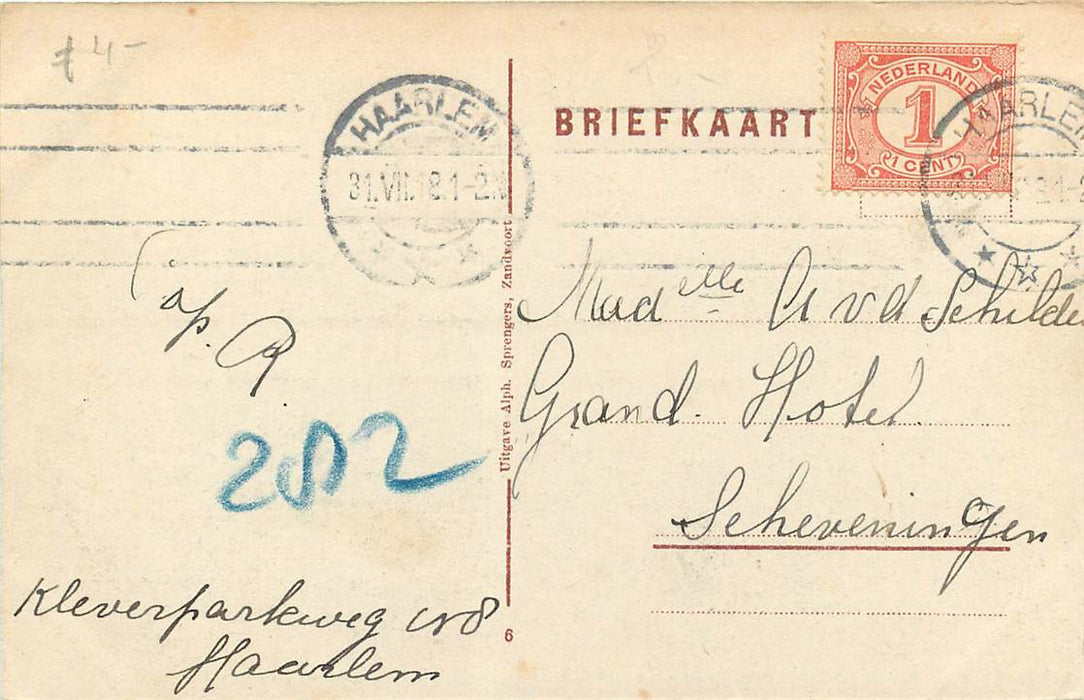 4-
HAARLEM
31.VII.18.1-2.N
BRIEFKAART
NEDERLAND
1
1 CENT
HAARLEM
op. R
202
Kleverparkweg 158
Haarlem
Uitgave Alph. Sprengers, Zandvoort
6
Madelle A v d Schilde
Grand Hotel
Scheveningen